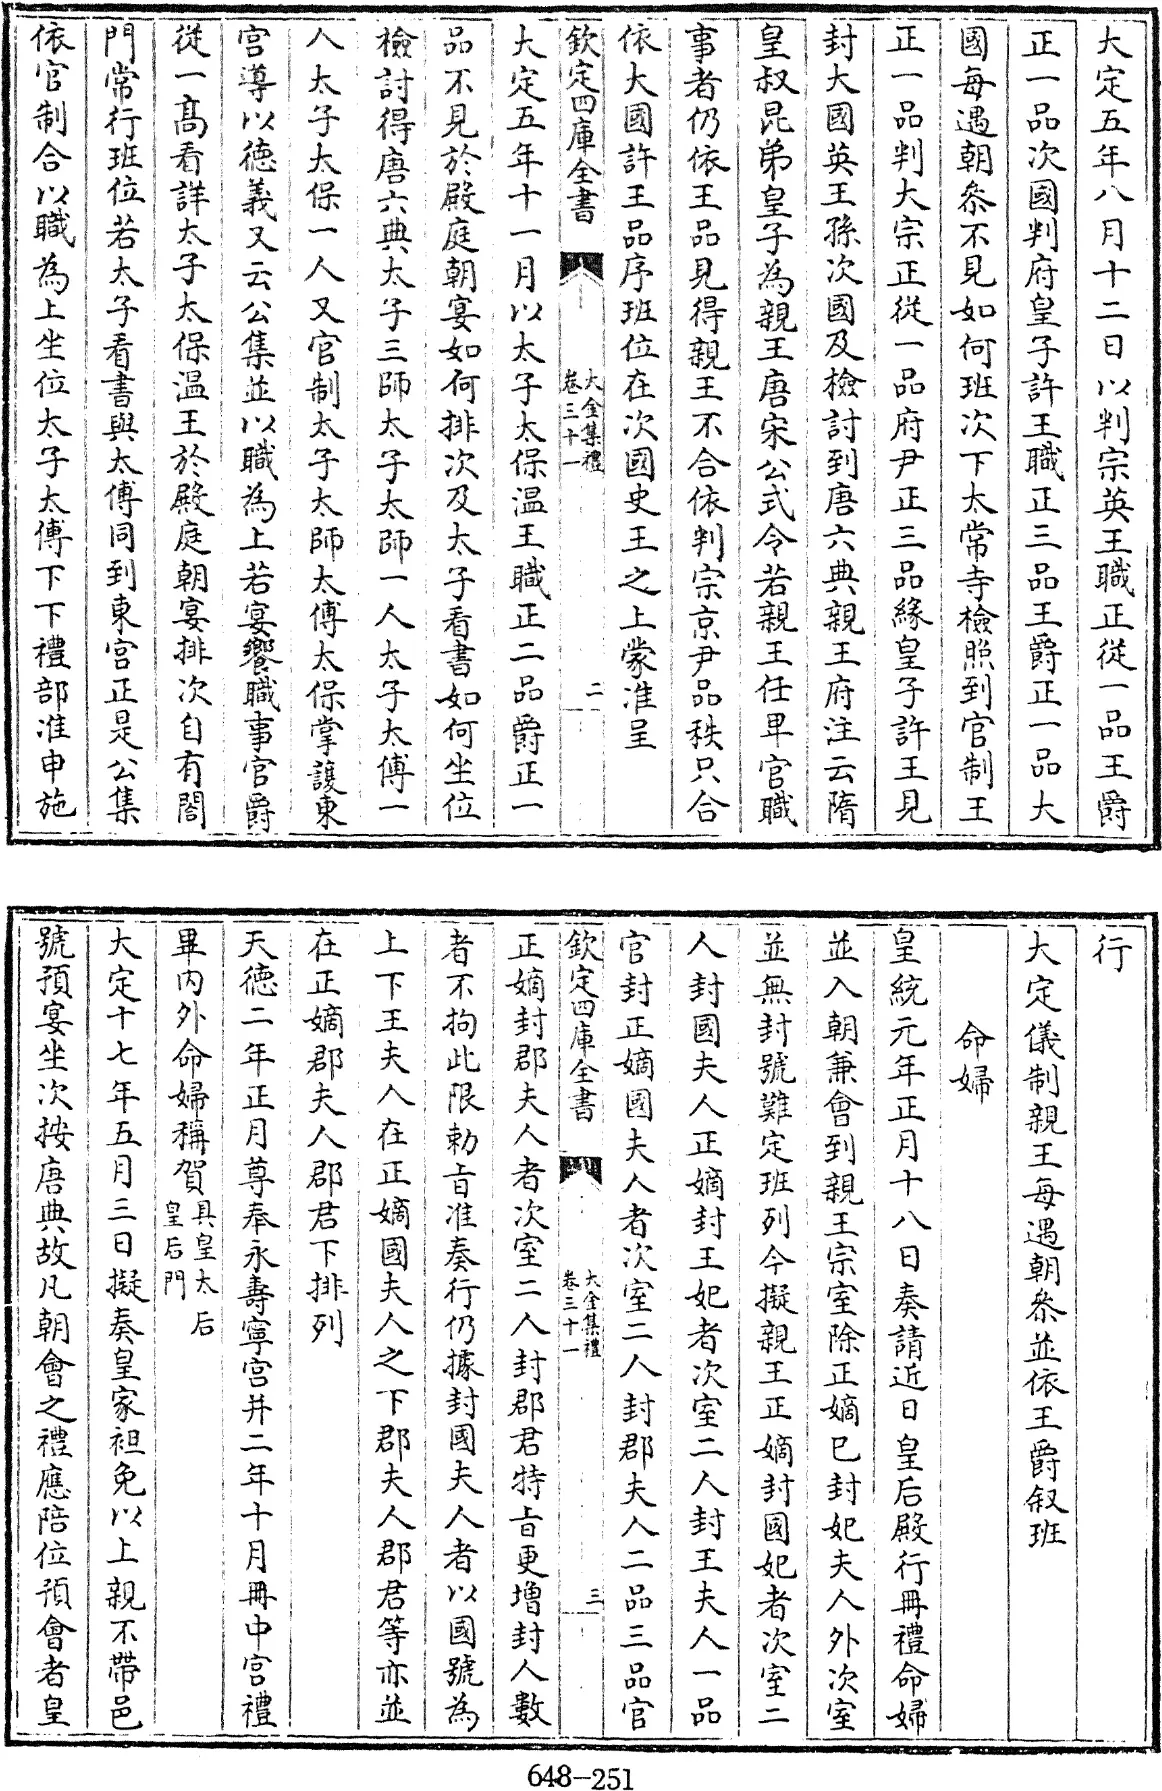 大定五年八月十二日以判宗英王職正從一品王爵
正一品次國判府皇子許王職正三品王爵正一品大
國每遇朝叅不見如何班次下太常寺檢照到官制王
正一品判大宗正從一品府尹正三品緣皇子許王見
封大國英王孫次國及檢討到唐六典親王府注云隋
皇叔昆弟皇子為親王唐宋公式令若親王任卑官職
事者仍依王品見得親王不合依判宗京尹品秩只合
依大國許王品序班位在次國史王之上蒙准呈
欽定四庫全書
大金集禮
卷三十一
二
大定五年十一月以太子太保温王職正二品爵正一
品不見於殿庭朝宴如何排次及太子看書如何坐位
檢討得唐六典太子三師太子太師一人太子太傅一
人太子太保一人又官制太子太師太傅太保掌護東
宮導以德義又云公集並以職為上若宴饗職事官爵
從一高看詳太子太保温王於殿庭朝宴排次自有閤
門常行班位若太子看書與太傅同到東宮正是公集
依官制合以職為上坐位太子太傅下下禮部准申施
行
大定儀制親王每遇朝叅並依王爵叙班
命婦
皇統元年正月十八日奏請近日皇后殿行冊禮命婦
並入朝兼會到親王宗室除正嫡已封妃夫人外次室
並無封號難定班列今擬親王正嫡封國妃者次室二
人封國夫人正嫡封王妃者次室二人封王夫人一品
官封正嫡國夫人者次室二人封郡夫人二品三品官
欽定四庫全書
大金集禮
卷三十一
三
正嫡封郡夫人者次室二人封郡君特旨更增封人數
者不拘此限勅旨准奏行仍據封國夫人者以國號為
上下王夫人在正嫡國夫人之下郡夫人郡君等亦並
在正嫡郡夫人郡君下排列
天德二年正月尊奉永壽寧宮并二年十月冊中宮禮
畢内外命婦稱賀具皇太后皇后門
大定十七年五月三日擬奏皇家袒免以上親不帶邑
號預宴坐次按唐典故凡朝會之禮應陪位預會者皇
648-251